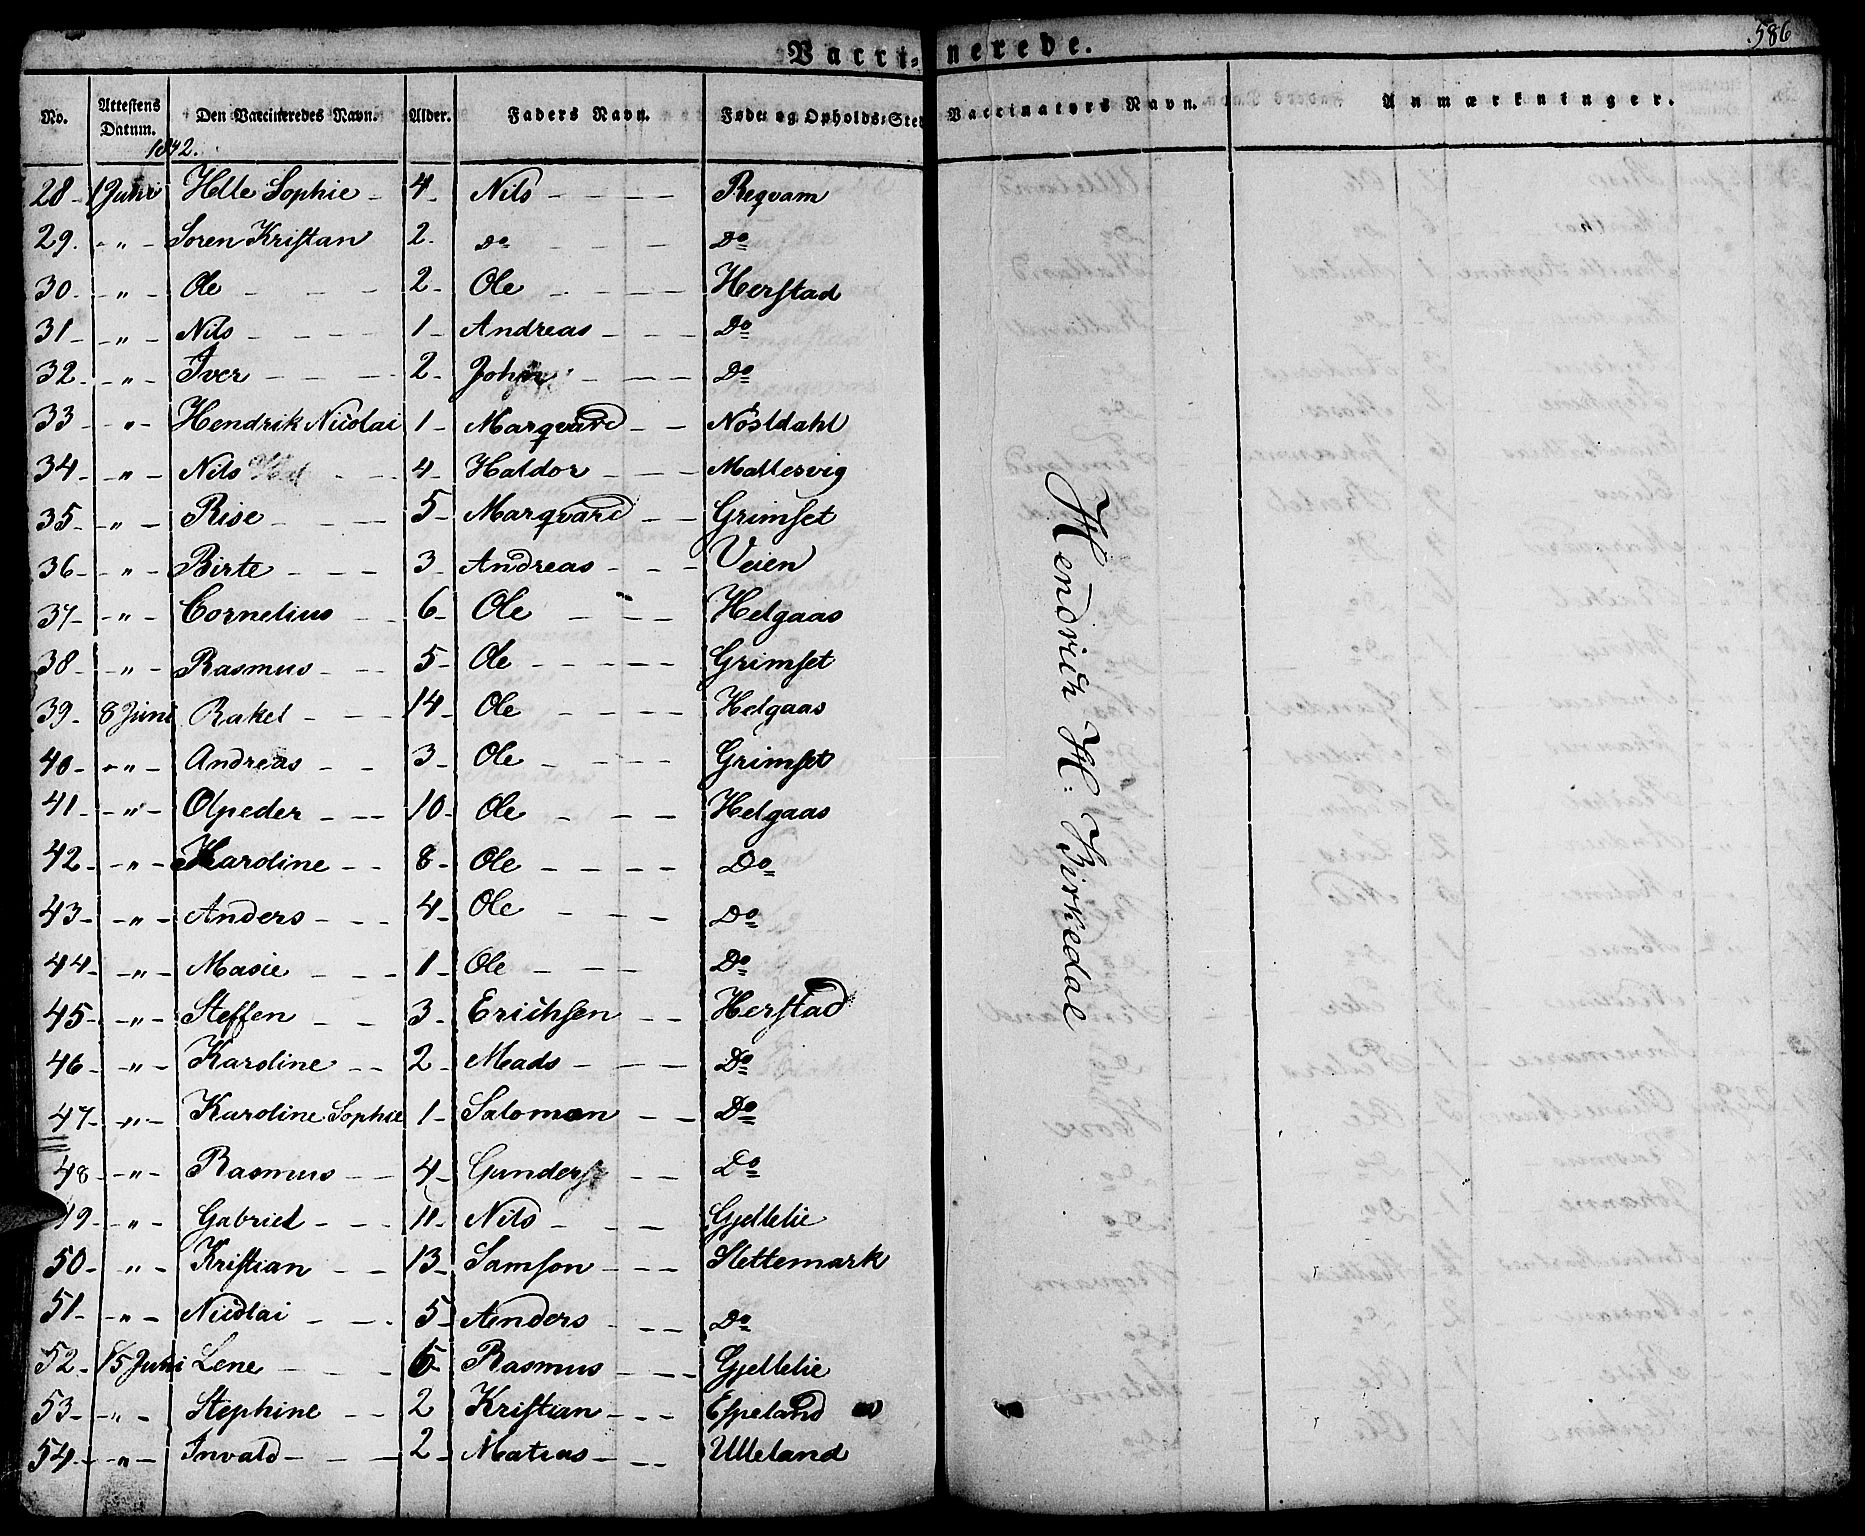 586
Vacci=nerede.
No. Attestens Datum. Den Vaccineredes Navn. Alder. Faders Navn. Føde= og Opholds=Sted Vaccinators Navn. Anmærkninger.
1842.
28 - 1 Juni Helle Sophie - 4 - Nils - - - - Reqvam
29. - " - Soren Kristan 2. Do - - - Do
30 - " - Ole - - - 2 - Ole - - - - Herstad
31 - " - Nils - - - 1 - Andreas - - - Do
32 - " - Iver - - - 2 - John - - - Do
33 - " - Hendrik Nicolai 1 - Marqvard - - Nosldahl
34 - " - Nils - - 4 - Haldor - - - Mallervig
35 - " - Rise - - - 5 - Marqvard - - Grimset
36 - " - Birte - - - 3 - Andreas - - - Veien
37 - " - Cornelius - - 6 - Ole - - - Helgaas
38 " - Rasmus - - 5 - Ole - - - - - Grimset
39 - 8 Juni Rakel - - - 14 - Ole - - - - Helgaas
40 - " - Andreas - - 3 - Ole - - - - Grimset
41 - " - Olpeder - - - 10 - Ole - - - Helgaas
42 - " - Karoline - - 8 - Ole - - - - Do
43 - " - Anders - - - 4 - Ole - - - Do
44 - " - Masie - - - 1 - Ole - - - Do
45 - " - Steffen - - 3 - Erichsen - - Herstad
46 - " - Karoline - - 2 - Mads - - - Do
47 - " - Karoline Sophie 1 - Salomon - - Do
48 - " - Rasmus - - 4 - Gunder - - Do
49 - " - Gabriel - - - 11 - Nils - - - Gjellelie
50 - " - Kristian - - 13 - Samson - - - Slettemark
51 - " - Nicolai - - 5 - Anders - - - Do
52 - 15 Juni Lene - - - Rasmus - - - Gjellelie
53 - " - Stephine - - 2 Kristian - - - Espeland
54 - " - Invald - - - 2 - Matias - - - Ulleland
Hendrich H: Birkedal